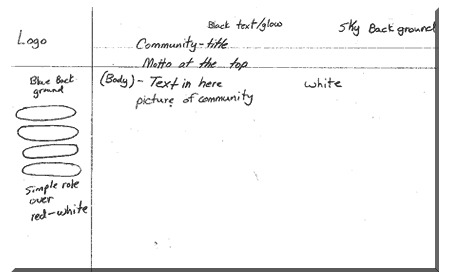 Black text/glow
Sky Background
Logo
Community-title
Motto at the top
Blue Back
ground
(Body) - Text in here
white
picture of community
Simple role
over
red-white